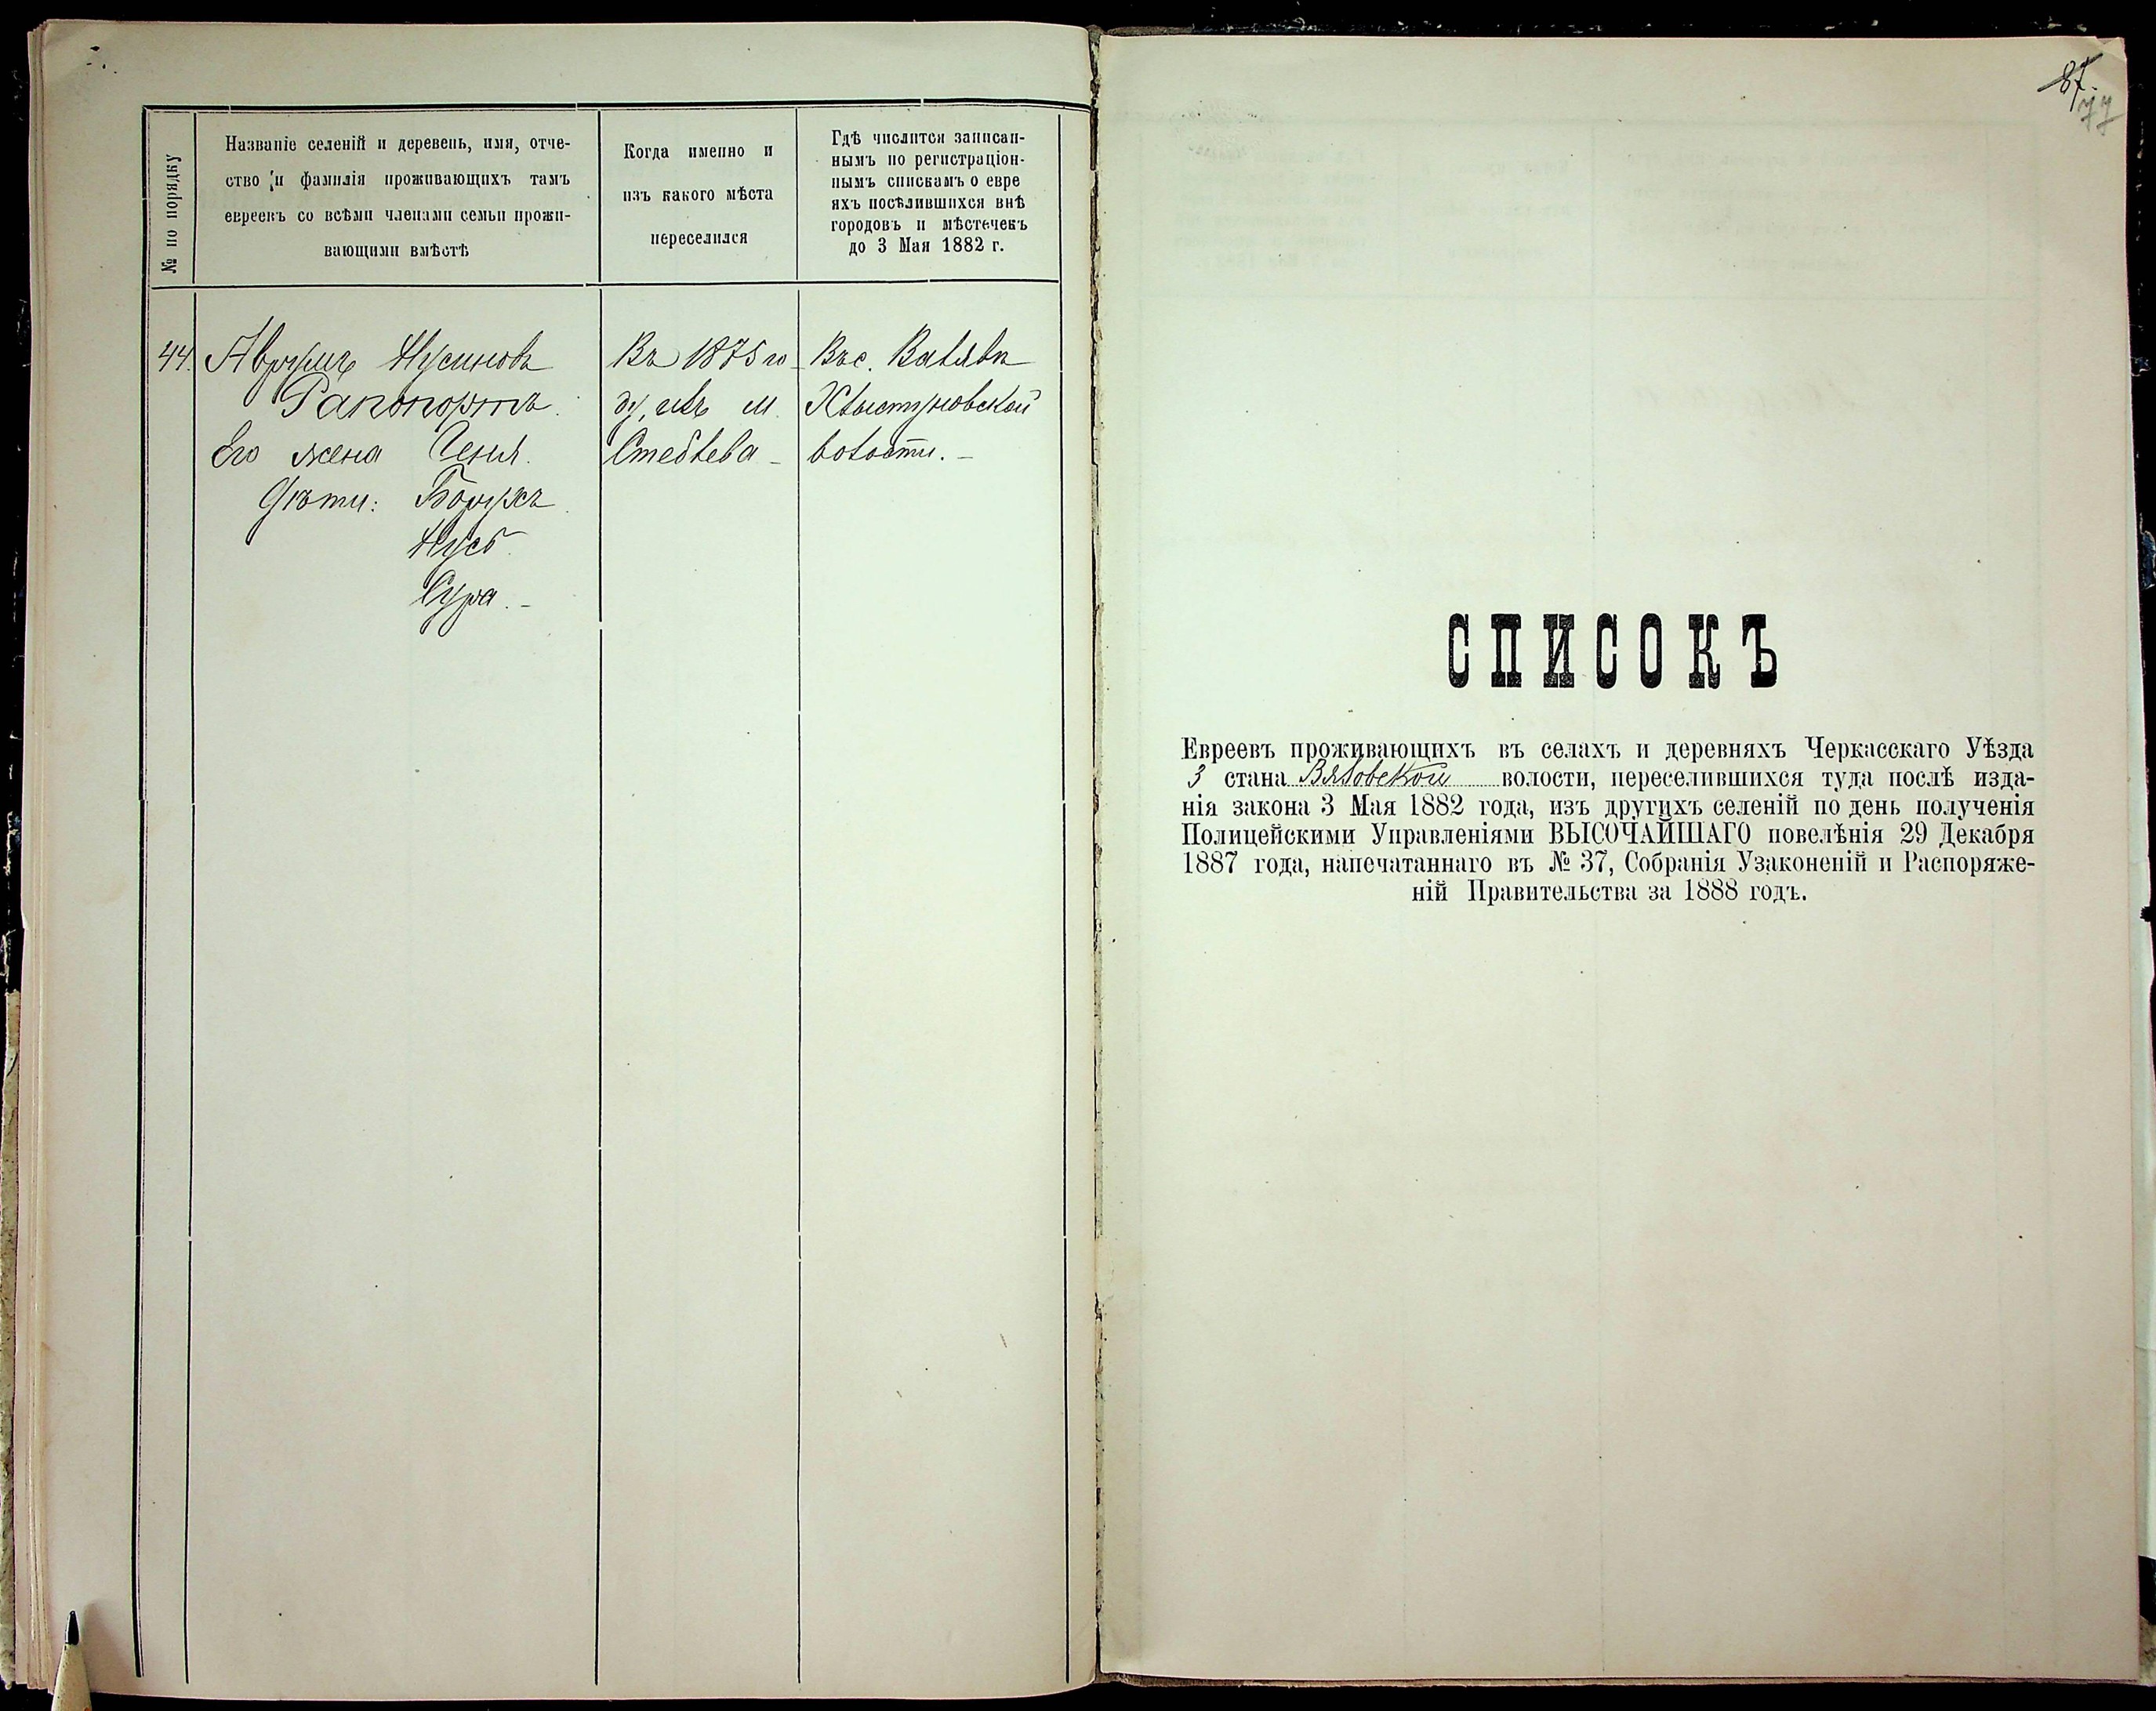 № по порядку
Названіе селеній и деревень, имя, отче-
ство и фамилія проживающихъ тамъ
евреевъ со всѣми членами семьи прожи-
вающими вмѣстѣ
Когда именно и
изъ какого мѣста
переселился
Гдѣ числится записан-
нымъ по регистраціон-
нымъ спискамъ о евре
яхъ посѣлившихся внѣ
городовъ и мѣстечекъ
до 3 Мая 1882 г.
44. Аврумъ Нусиновъ
Рапопортъ.
Его жена Геня.
Дѣти: Борухъ.
Нусь.
Сура. –
Въ 1875 го-
ду, изъ м.
Стеблева –
Въ с. Валявѣ
Хлыстуновской
волости. –
87.
77
СПИСОКЪ
Евреевъ проживающихъ въ селахъ и деревняхъ Черкасскаго Уѣзда
3 стана Вязовской волости, переселившихся туда послѣ изда-
нія закона 3 Мая 1882 года, изъ другихъ селеній по день полученія
Полицейскими Управленіями ВЫСОЧАЙШАГО повелѣнія 29 Декабря
1887 года, напечатаннаго въ № 37, Собранія Узаконеній и Распоряже-
ній Правительства за 1888 годъ.